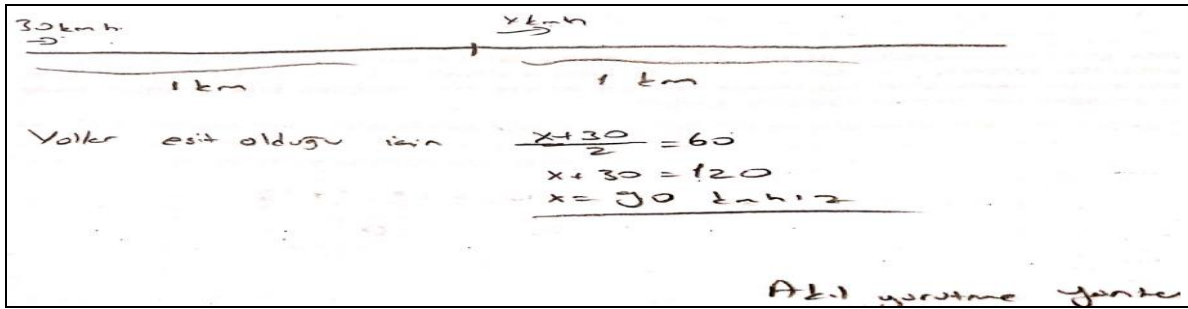 30 km h. x kmh
1 km 1 km
Yollar esit olduğu için x+30/2 = 60
x + 30 = 120
x = 90 km hız
Akıl yürütme yönte